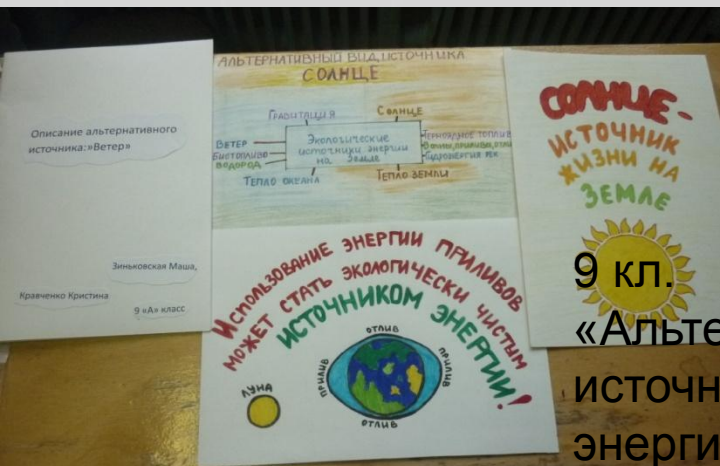 Описание альтернативного
источника:»Ветер»
Зиньковская Маша,
Кравченко Кристина
9 «А» класс
АЛЬТЕРНАТИВНЫЙ ВИД ИСТОЧНИКА
СОЛНЦЕ
ГРАВИТАЦИЯ
СОЛНЦЕ
ВЕТЕР
БИОТОПЛИВО
ВОДОРОД
Экологические
источники энергии
на Земле
ТЕРМОЯДНОЕ ТОПЛИВ
ТЕПЛО ОКЕАНА
ТЕПЛО ЗЕМЛИ
Использование энергии приливов
может стать экологически чистым
источником энергии!
ЛУНА
ОТЛИВ
ПРИЛИВ
ПРИЛИВ
ОТЛИВ
СОЛНЦЕ-
ИСТОЧНИК
ЖИЗНИ НА
ЗЕМЛЕ
9 кл.
«Альте
источн
энерги